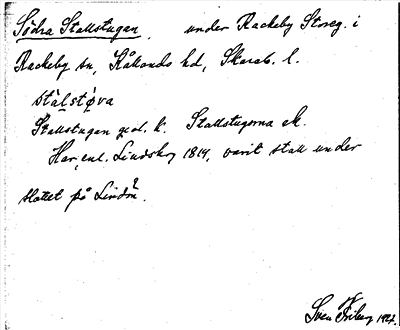 Södra Stallstugan, under Rackeby Storeg. i
Rackeby sn, Kållands hd, Skarab. l.
stálstɷva
Stallstugan geol. k. Stallstugorna ek.
Har, enl. Lindskog 1814, varit stall under
slottet på Lindön?
Sven Friberg 1927.